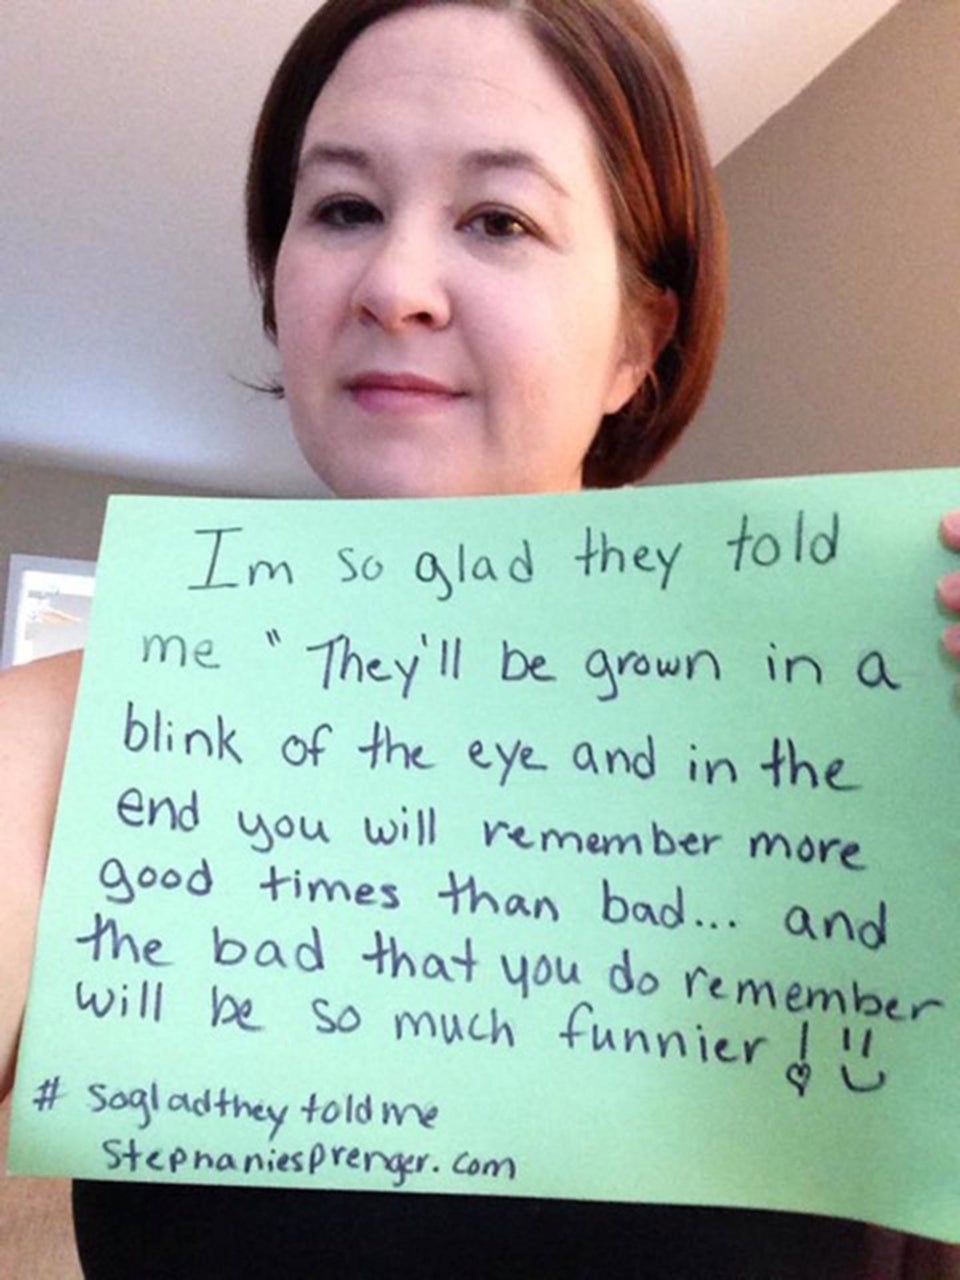 Im so glad they told
me "They'll be grown in a
blink of the eye and in the
end you will remember more
good times than bad... and
the bad that you do remember
will be so much funnier!
# sogladtheytoldme
stephaniesprenger.com